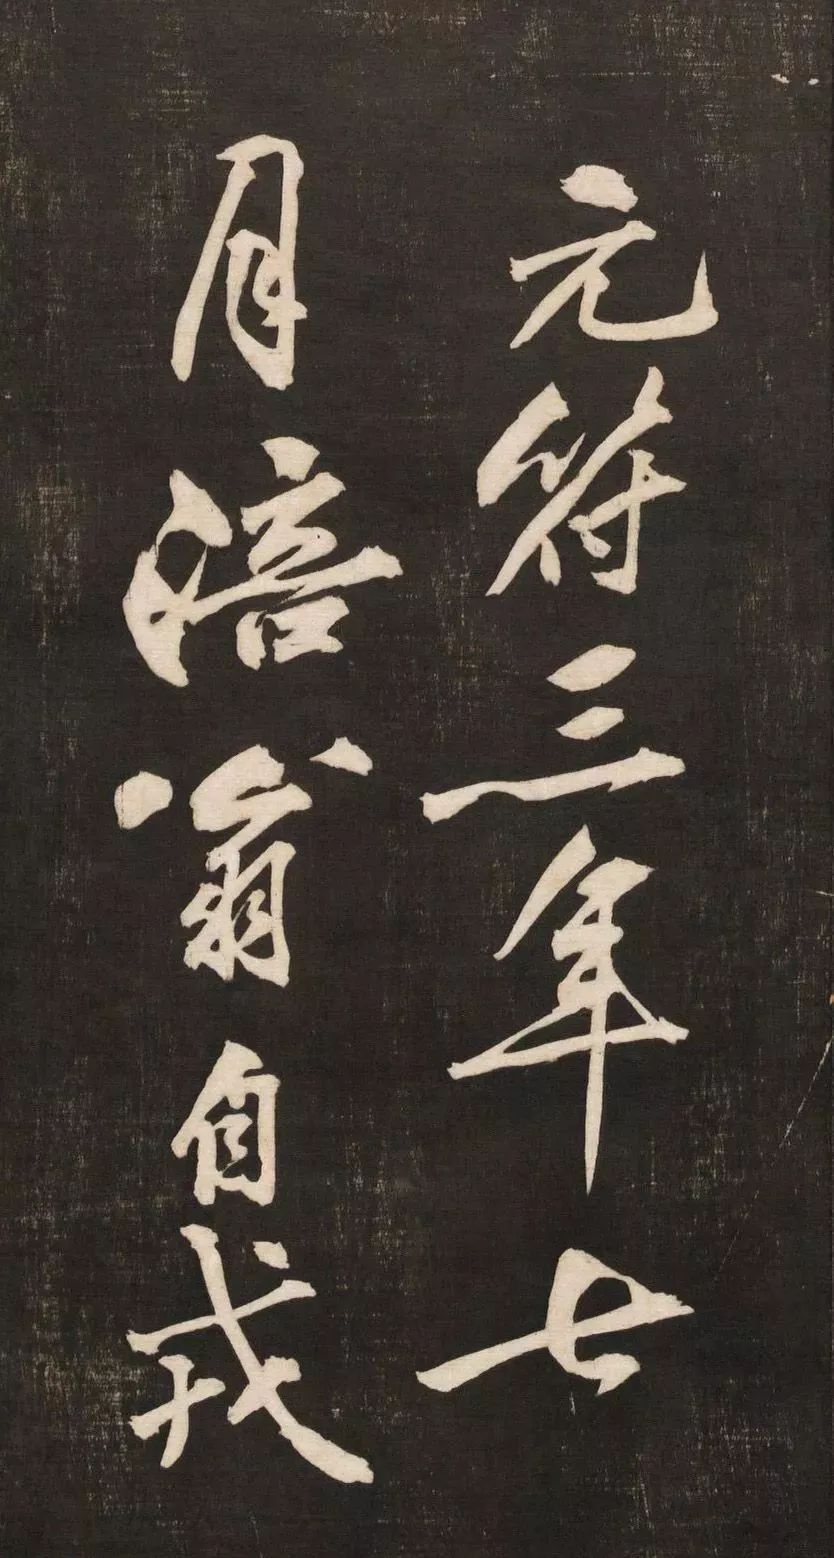 元符三年七
月涪翁自戎